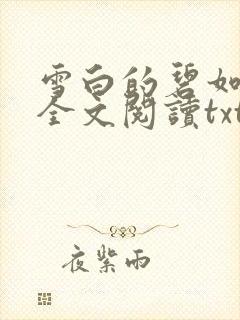 雪白的碧如
全文閱讀txt
夜紫雨